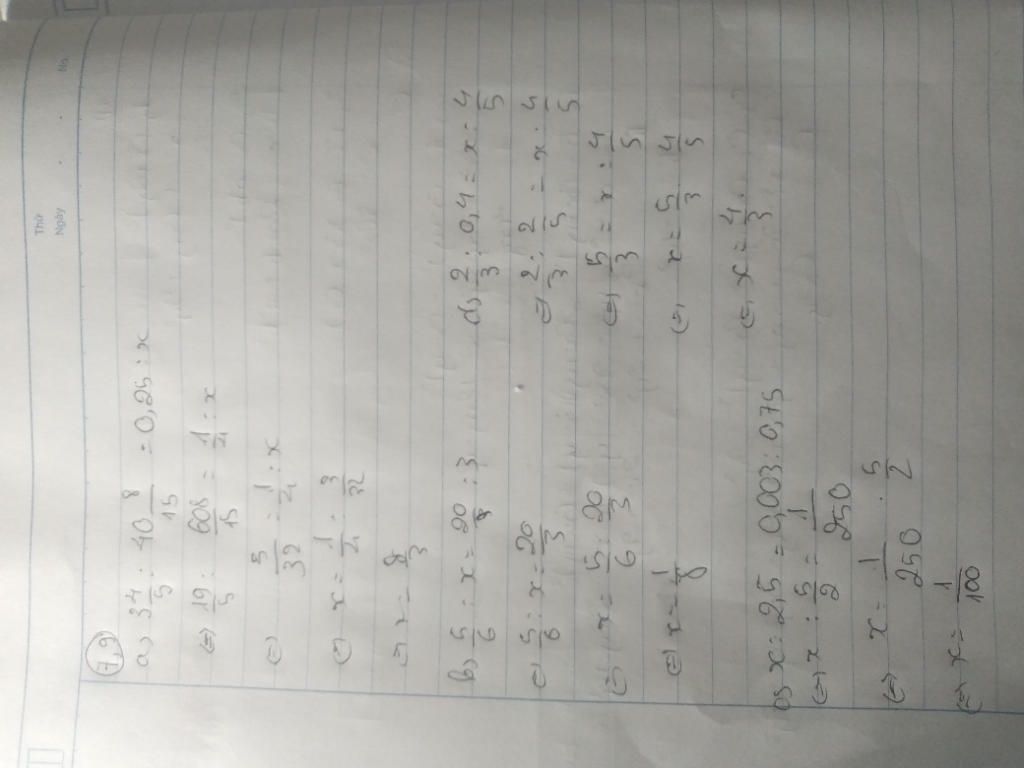 Thứ
Ngày
No
7.9
a) 3 4/5 : 40 8/15 = 0,25 : x
(=) 19/5 : 608/15 = 1/4 : x
(=) 3/32 = 1/4 : x
(=) x = 1/4 : 3/32
(=) x = 8/3
b) 5/6 : x = 20 : 3
(=) 5/6 : x = 20/3
(=) x = 5/6 : 20/3
(=) x = 1/8
c) x : 2,5 = 0,003 : 0,75
(=) x : 5/2 = 1/250
(=) x = 1/250 . 5/2
(=) x = 1/100
d) 2/3 : 0,4 = x : 4/5
(=) 2/3 : 2/5 = x : 4/5
(=) 5/3 = x : 4/5
(=) x = 5/3 . 4/5
(=) x = 4/3